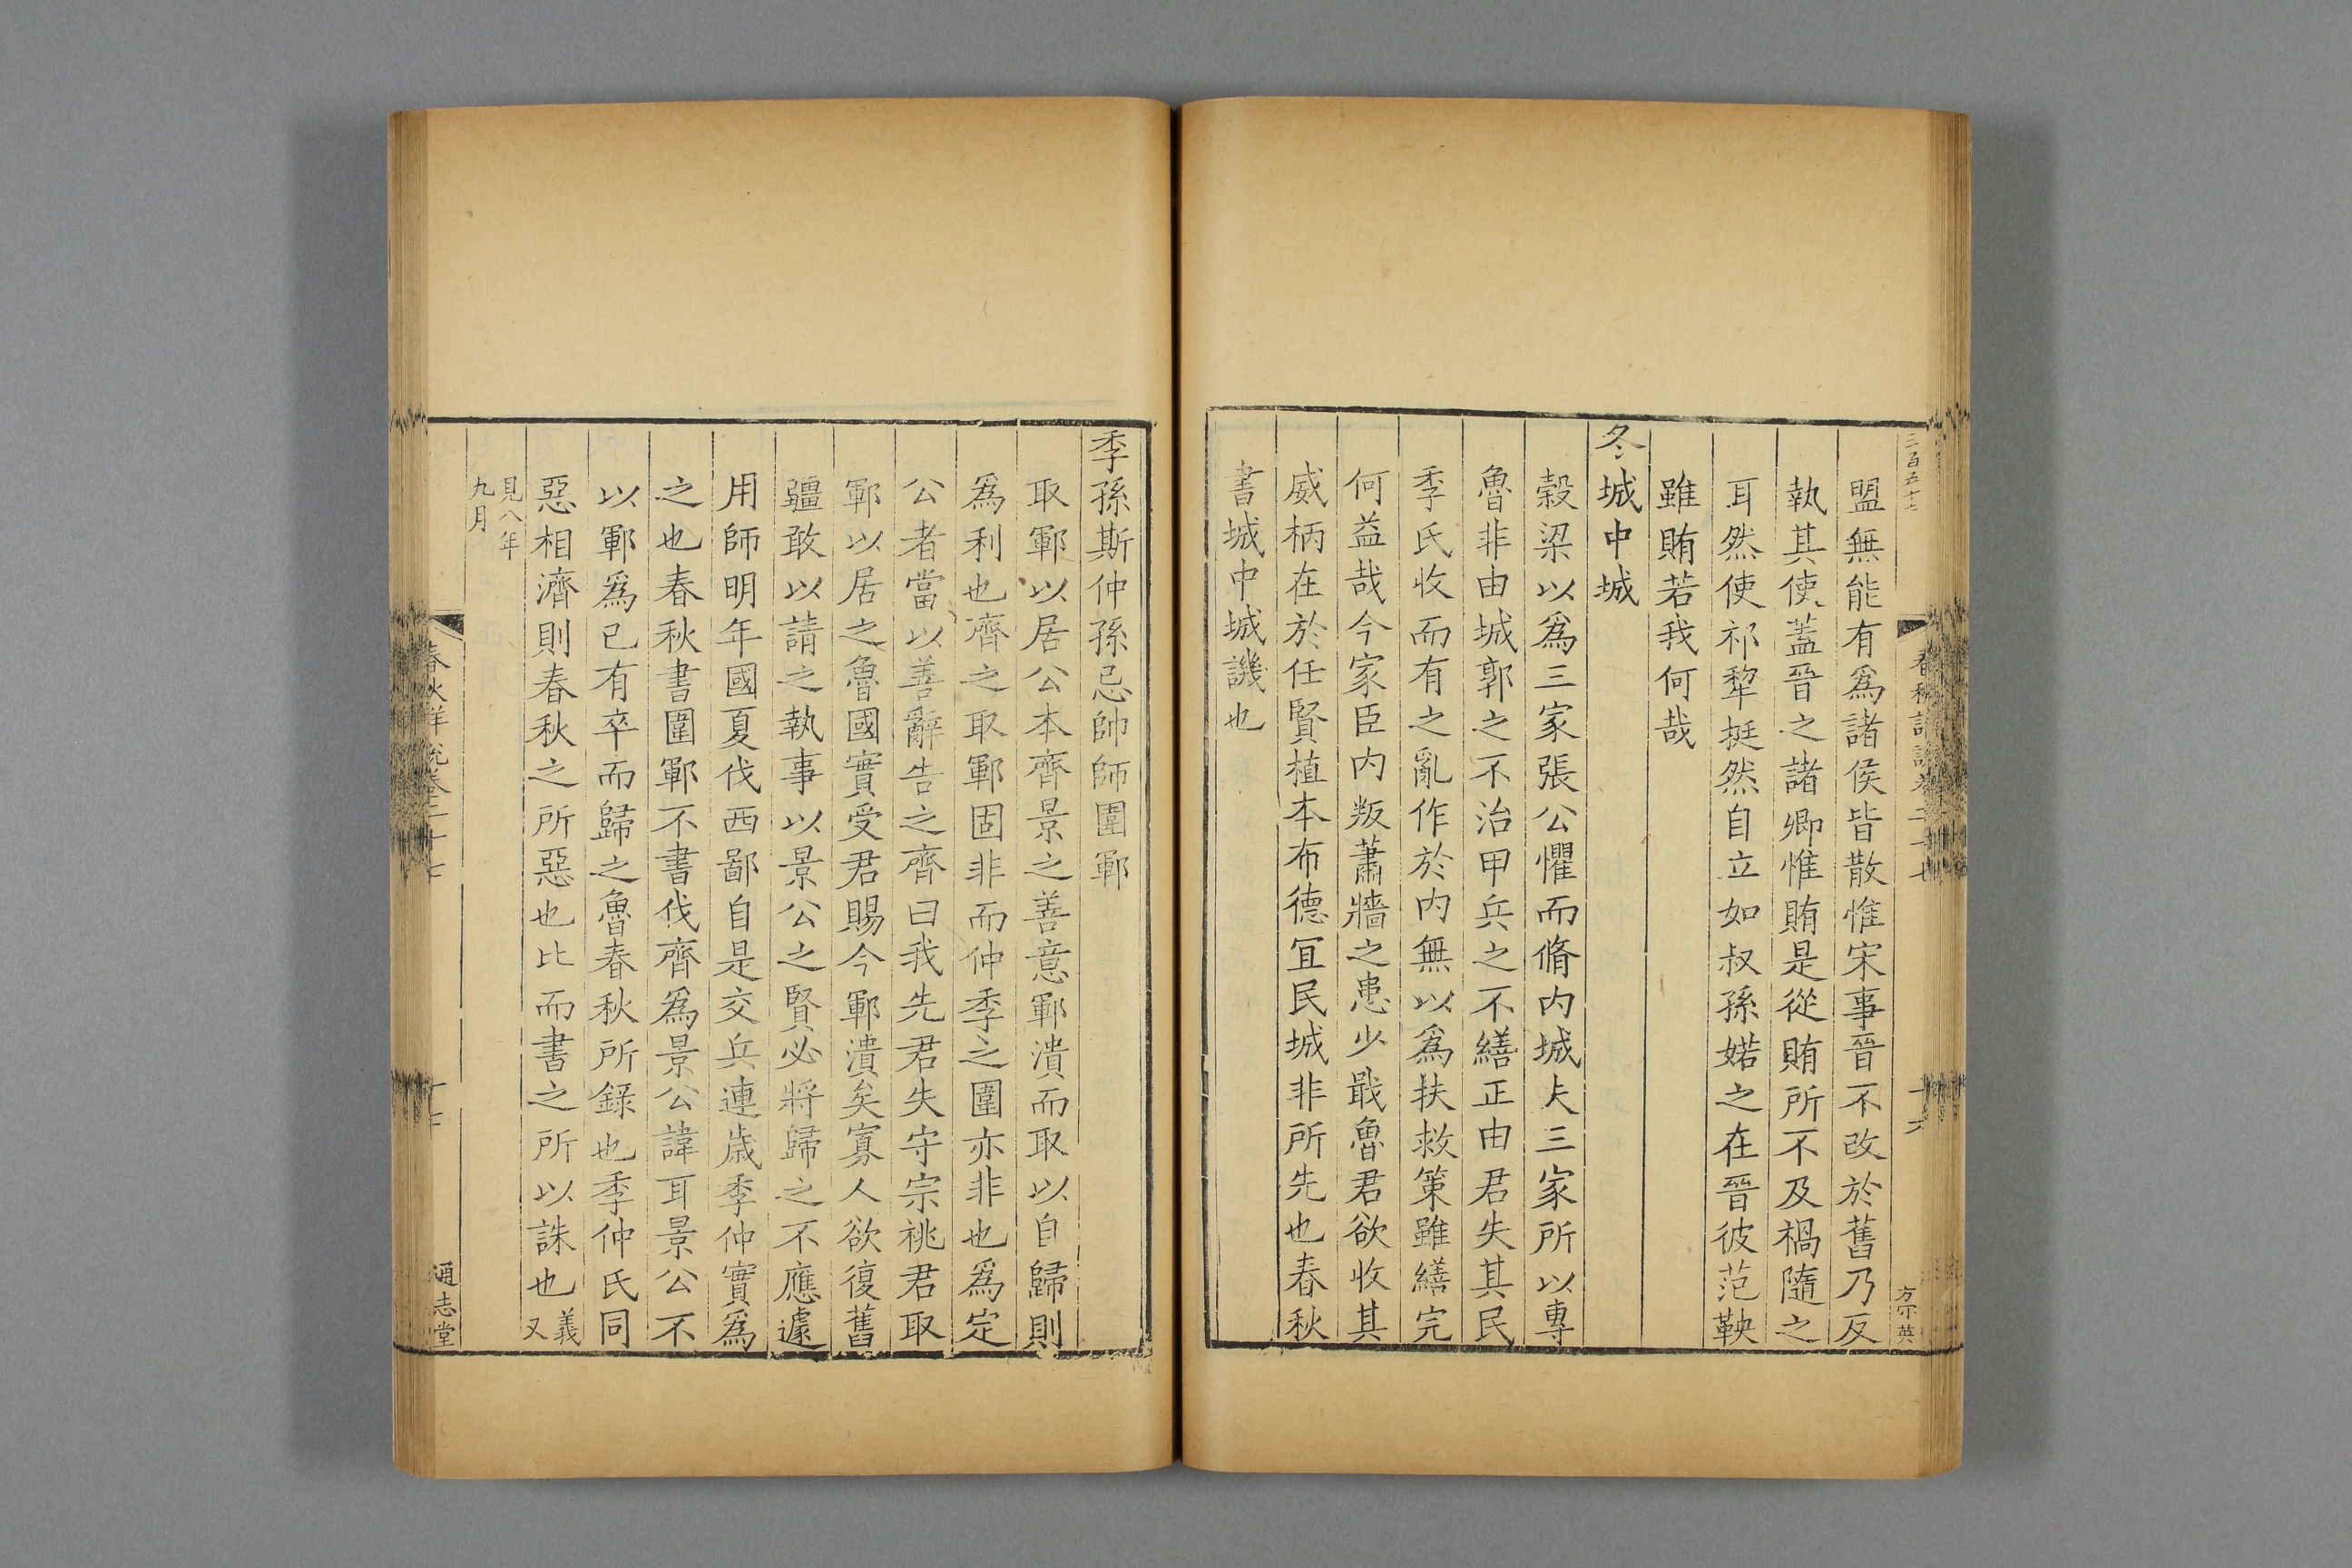 三百五十七
春秋詳說卷二十七
十六
方宗英
盟無能有爲諸侯皆散惟宋事晉不改於舊乃反
執其使蓋晉之諸卿惟賄是從賄所不及禍隨之
耳然使祁犂挺然自立如叔孫婼之在晉彼范鞅
雖賄若我何哉
冬城中城
穀梁以爲三家張公懼而脩內城夫三家所以專
魯非由城郭之不治甲兵之不繕正由君失其民
季氏收而有之亂作於內無以爲扶救策雖繕完
何益哉今家臣內叛蕭牆之患少戢魯君欲收其
威柄在於任賢植本布德宜民城非所先也春秋
書城中城譏也
季孫斯仲孫忌帥師圍鄆
取鄆以居公本齊景之善意鄆潰而取以自歸則
爲利也齊之取鄆固非而仲季之圍亦非也爲定
公者當以善辭告之齊曰我先君失守宗祧君取
鄆以居之魯國實受君賜今鄆潰矣寡人欲復舊
疆敢以請之執事以景公之賢必將歸之不應遽
用師明年國夏伐西鄙自是交兵連歲季仲實爲
之也春秋書圍鄆不書伐齊爲景公諱耳景公不
以鄆爲己有卒而歸之魯春秋所錄也季仲氏同
惡相濟則春秋之所惡也比而書之所以誅也義又
見八年
九月
春秋詳說卷二十七
十七
通志堂